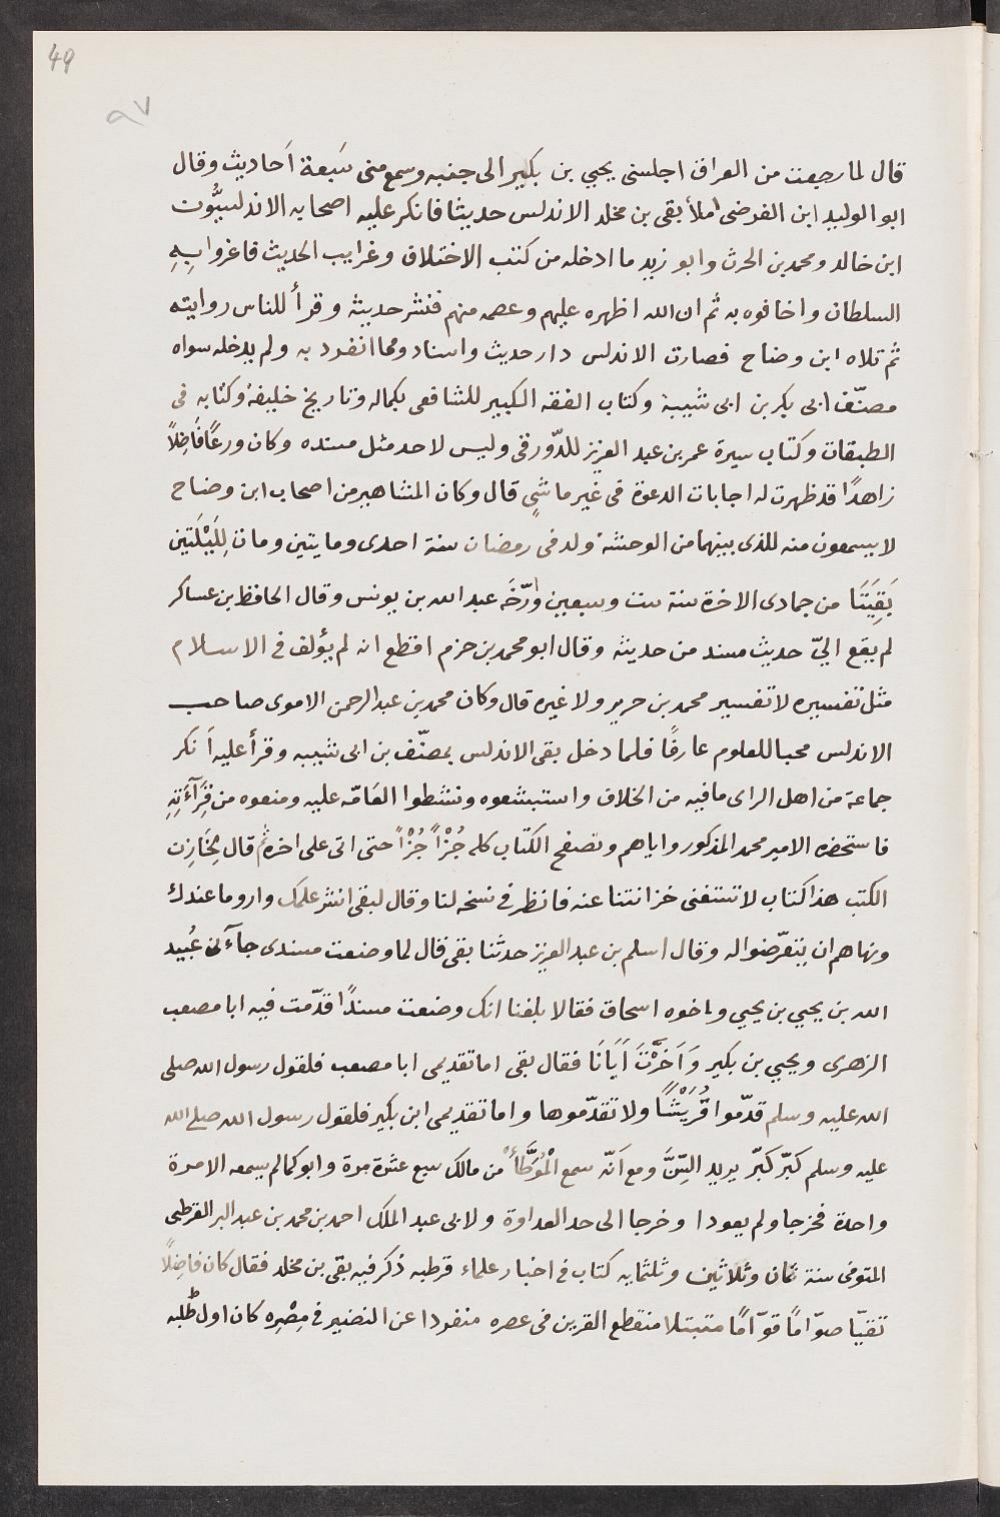 49
٩٧
قال لما رجعت من العراق اجلسنى يحيي بن بكير الى جنبه وسمع منى سَبعة اَحاديث وقال
ابو الوليد ابن الفرضى املأ بقى بن مخلد الاندلس حديثا فانكر عليه اصحابه الاندلسيُّون
ابن خالد ومحمد بن الحرث وابو زيد ما ادخله من كتب الاختلاف وغرايب الحديث فاغروا بِهِ
السلطان واخافوه به ثم ان الله اظهره عليهم وعصمه منهم فنشر حديثه وقرأ للناس روايته
ثم تلاه ابن وضاح فصارت الاندلس دار حديث واسناد ومما انفرد به ولم يدخله سواه
مصنّف ابى بكر بن ابى شيبة وكتاب الفقه الكبير للشافعى بكماله وتاريخ خليفة وكتابه فى
الطبقات وكتاب سيرة عمر بن عبد العزيز للدّورقى وليس لاحد مثل مسنده وكان ورعًا فَاضِلاً
زاهدًا قد ظهرت له اجابات الدعوة فى غير ما شىٍ قال وكان المشاهير من اصحاب ابن وضاح
لا يسمعون منه للذى بينهما من الوحشة ولد فى رمضان سنة احدى ومايتين ومات لِلَيْلَتَين
بَقِيَتَا من جمادى الاخرة سنة ست وسبعين وٰرّخَه عبد الله بن يونس وقال الحافظ بن عساكر
لم يقع اليّ حديث مسند من حديثه وقال ابو محمد بن حزم اقطع انه لم يؤلف فى الاسلام
مثل تفسيره لا تفسير محمد بن حرير ولا غيره قال وكان محمد بن عبد الرحمن الاموى صاحب
الاندلس محبا للعلوم عارفًا فلما دخل بقى الاندلس بمصنّف بن ابى شيبه وقرأ عليه اَنكر
جماعة من اهل الراى ما فيه من الخلاف واستبشعوه ونشطوا العَامّه عليه ومنعوه من قِرَآءَتِهِ
فاستحضره الامير محمد المذكور واياهم وتصفح الكتاب كله جُزْاً جُزْاً حتى اتى على اخره ثم قال لِخَازِن
الكتب هذا كتاب لا تستغنى خزانتنا عنه فانظر فى نسخه لنا وقال لبقى انشر علمك وارو ما عندك
ونهاهم ان يتعرّضوا له وقال اسلم بن عبد العزيز حدثنا بقى قال لما وضعت مسندى جآءنى عُبيد
الله بن يحيي بن يحيي واخوه اسحاق فقالا بلغنا انك وضعت مسندًا قدّمت فيه ابا مصعب
الزهرى ويحيي بن بكير وَاَخّرْتَ اَبَانَا فقال بقى اما تقديمى ابا مصعب فلقول رسول الله صلى
الله عليه وسلم قدّموا قُرَيْشًا ولا تقدّموها واما تقديمى ابن بكير فلقول رسول الله صلى الله
عليه وسلم كَبّر كَبّر يريد السِّنَّ ومع اَنّه سمع الْمُوَطَّأ من مالك سبع عشرة مرة وابوكما لم يسمعه الا مرة
واحدة فخرجا ولم يعودا وخرجا الى حد العداوة ولابى عبد الملك احمد بن محمد بن عبد البر القرطبى
المتوفى سنة ثمان وثلاثين وثلثمايه كتاب فى اخبار علماء قرطبه ذكر فيه بقى بن مخلد فقال كان فاضِلًا
تقيّا صوّامًا قوّامًا متبتلا منقطع القرين فى عصره منفردا عن النضير فى مِصْرِه كان اول طلبه